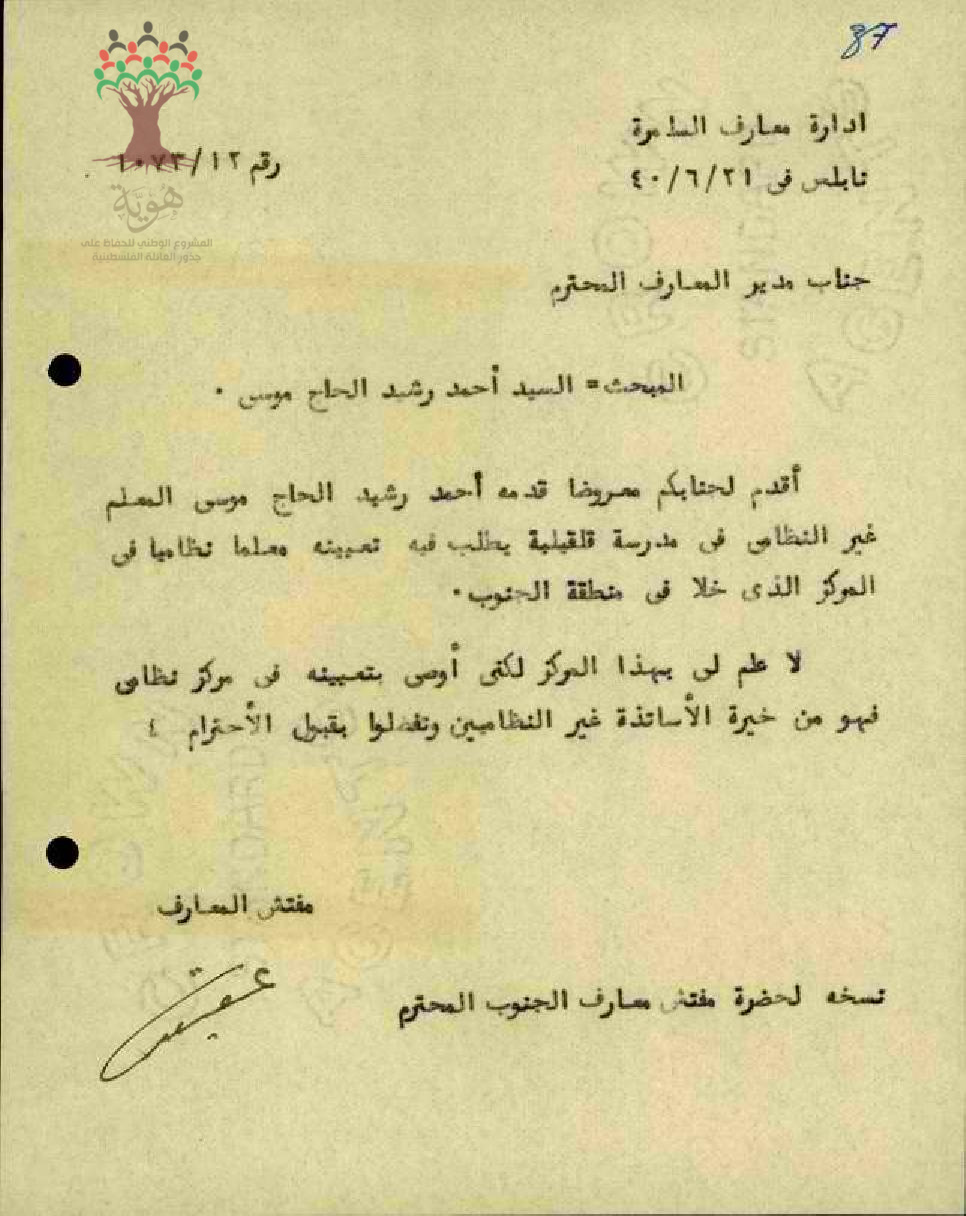 87
ادارة معارف السامرة
رقم ١٠٧٣/١٢
نابلس فى ٤٠/٦/٢١
هوية
المشروع الوطني للحفاظ على
جذور العائلة الفلسطينية
جناب مدير المعارف المحترم
المبحث = السيد أحمد رشيد الحاج موسى ٠
أقدم لجنابكم معروضا قدمه أحمد رشيد الحاج موسى المعلم
غير النظامى فى مدرسة قلقيلية يطلب فيه تعيينه معلما نظاميا فى
المركز الذى خلا فى منطقة الجنوب٠
لا علم لى بهذا المركز لكنى أوصى بتعيينه فى مركز نظامى
فهو من خيرة الأساتذة غير النظاميين وتفضلوا بقبول الأحترام ٤
مفتش المعارف
نسخه لحضرة مفتش معارف الجنوب المحترم